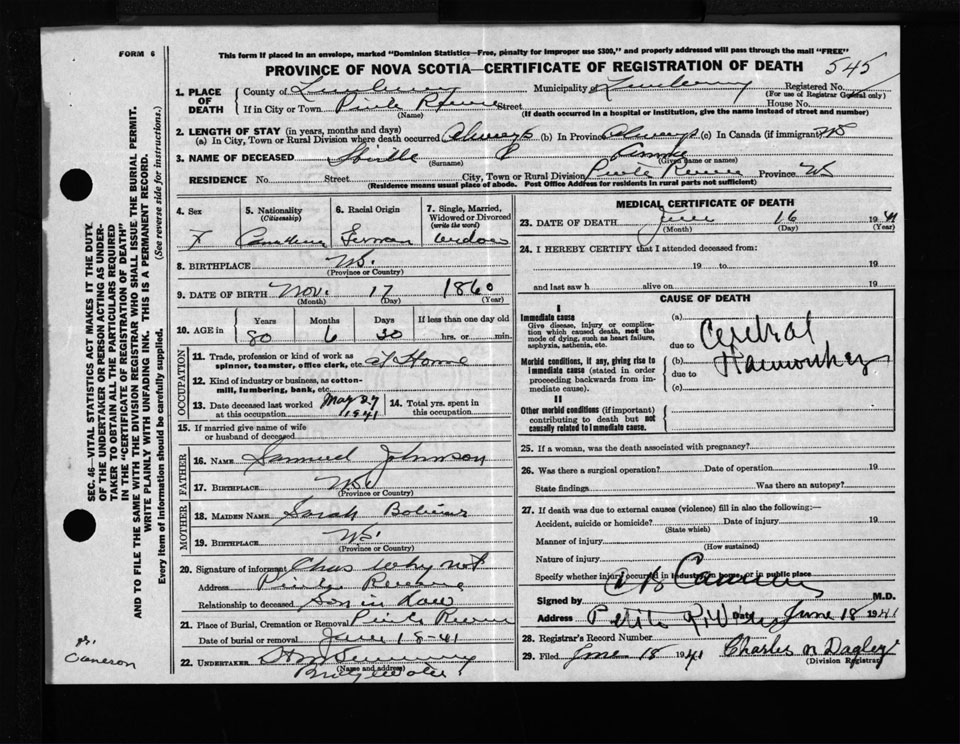 FORM 6
This form if placed in an envelope, marked "Dominion Statistics—Free, penalty for improper use $300," and properly addressed will pass through the mail "FREE"
PROVINCE OF NOVA SCOTIA—CERTIFICATE OF REGISTRATION OF DEATH 545
1. PLACE OF DEATH County of Lunenburg Municipality of Lunenburg Registered No.
(For use of Registrar General only)
If in City or Town Street House No.
(Name) (If death occurred in a hospital or institution, give the name instead of street and number)
2. LENGTH OF STAY (in years, months and days)
(a) In City, Town or Rural Division where death occurred Always (b) In Province Always (c) In Canada (if immigrant)
3. NAME OF DECEASED
(Surname) (Given name or names)
RESIDENCE No. Street City, Town or Rural Division Province NS
(Residence means usual place of abode. Post Office Address for residents in rural parts not sufficient)
4. Sex 5. Nationality (Citizenship) 6. Racial Origin 7. Single, Married, Widowed or Divorced (write the word)
F Canadian German widow
8. BIRTHPLACE N.S.
(Province or Country)
9. DATE OF BIRTH Nov. 17 1860
(Month) (Day) (Year)
10. AGE in Years Months Days If less than one day old
80 6 30 hrs. or min.
OCCUPATION
11. Trade, profession or kind of work as spinner, teamster, office clerk, etc. at Home
12. Kind of industry or business, as cotton-mill, lumbering, bank, etc.
13. Date deceased last worked at this occupation May 27 1941 14. Total yrs. spent in this occupation
15. If married give name of wife or husband of deceased
FATHER
16. NAME Samuel Johnson
17. BIRTHPLACE N.S.
(Province or Country)
MOTHER
18. MAIDEN NAME Sarah
19. BIRTHPLACE N.S.
(Province or Country)
20. Signature of informant Chas Whynot
Address
Relationship to deceased Son in Law
21. Place of Burial, Cremation or Removal
Date of burial or removal June 18-41
22. UNDERTAKER
(Name and address)
Bridgewater
MEDICAL CERTIFICATE OF DEATH
23. DATE OF DEATH June 16 1941
(Month) (Day) (Year)
24. I HEREBY CERTIFY that I attended deceased from:
19 to 19
and last saw h alive on 19
CAUSE OF DEATH
I
Immediate cause
Give disease, injury or complication which caused death, not the mode of dying, such as heart failure, asphyxia, asthenia, etc.
(a)
due to Cerebral
Morbid conditions, if any, giving rise to immediate cause (stated in order proceeding backwards from immediate cause).
(b) Haemorrhage
due to
(c)
II
Other morbid conditions (if important) contributing to death but not causally related to immediate cause.
25. If a woman, was the death associated with pregnancy?
26. Was there a surgical operation? Date of operation 19
State findings Was there an autopsy?
27. If death was due to external causes (violence) fill in also the following:—
Accident, suicide or homicide? Date of injury 19
(State which)
Manner of injury
(How sustained)
Nature of injury
Specify whether injury occurred in industry, in home, or in public place
Signed by Cameron M.D.
Address Petite Riviere Date June 18 1941
28. Registrar's Record Number
29. Filed June 18 1941 Charles N Dagley
(Division Registrar)
SEC. 46—VITAL STATISTICS ACT MAKES IT THE DUTY OF THE UNDERTAKER OR PERSON ACTING AS UNDERTAKER TO OBTAIN ALL THE PARTICULARS REQUIRED IN THE "CERTIFICATE OF REGISTRATION OF DEATH" AND TO FILE THE SAME WITH THE DIVISION REGISTRAR WHO SHALL ISSUE THE BURIAL PERMIT.
WRITE PLAINLY WITH UNFADING INK. THIS IS A PERMANENT RECORD.
Every item of information should be carefully supplied. (See reverse side for instructions.)
Cameron